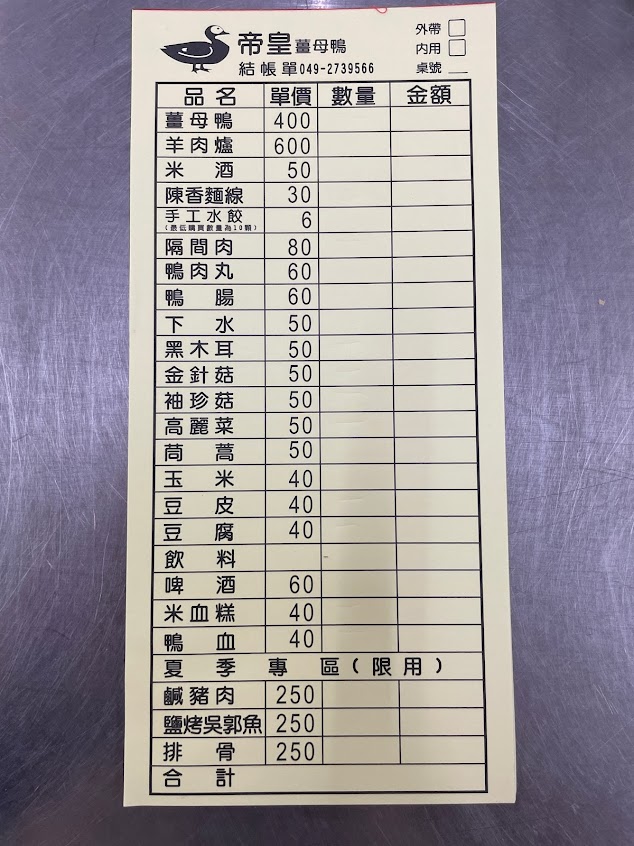 帝皇薑母鴨
結帳單049-2739566
外帶
內用
桌號
品名 單價 數量 金額
薑母鴨 400
羊肉爐 600
米酒 50
陳香麵線 30
手工水餃 6
(最低購買數量為10顆)
隔間肉 80
鴨肉丸 60
鴨腸 60
下水 50
黑木耳 50
金針菇 50
袖珍菇 50
高麗菜 50
茼蒿 50
玉米 40
豆皮 40
豆腐 40
飲料
啤酒 60
米血糕 40
鴨血 40
夏季專區(限用)
鹹豬肉 250
鹽烤吳郭魚 250
排骨 250
合計